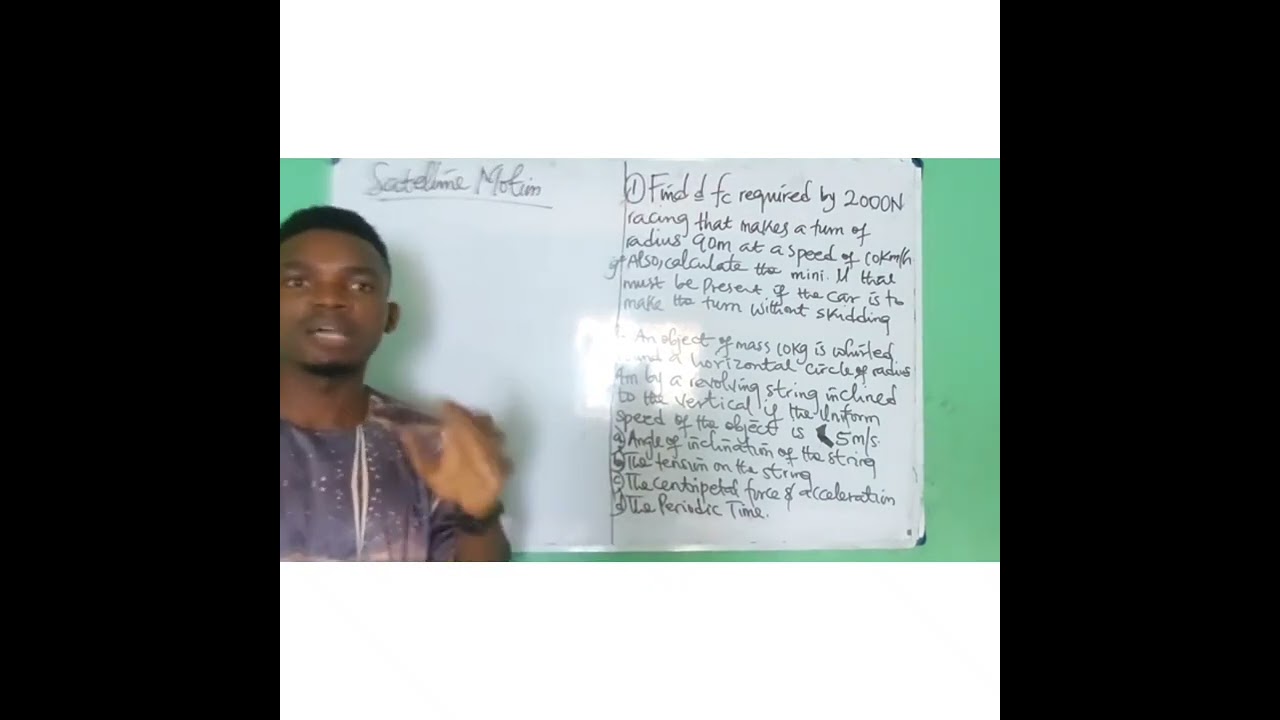 Satellite Motion
① Find d fc required by 2000N
racing that makes a turn of
radius 90m at a speed of 10km/h
Also, calculate the mini. μ that
must be present if the car is to
make the turn without skidding
An object of mass 10kg is whirled
round a horizontal circle of radius
4m by a revolving string inclined
to the vertical if the uniform
speed of the object is 5m/s.
a) Angle of inclination of the string
b) The tension on the string
c) The centripetal force & acceleration
d) The Periodic Time.